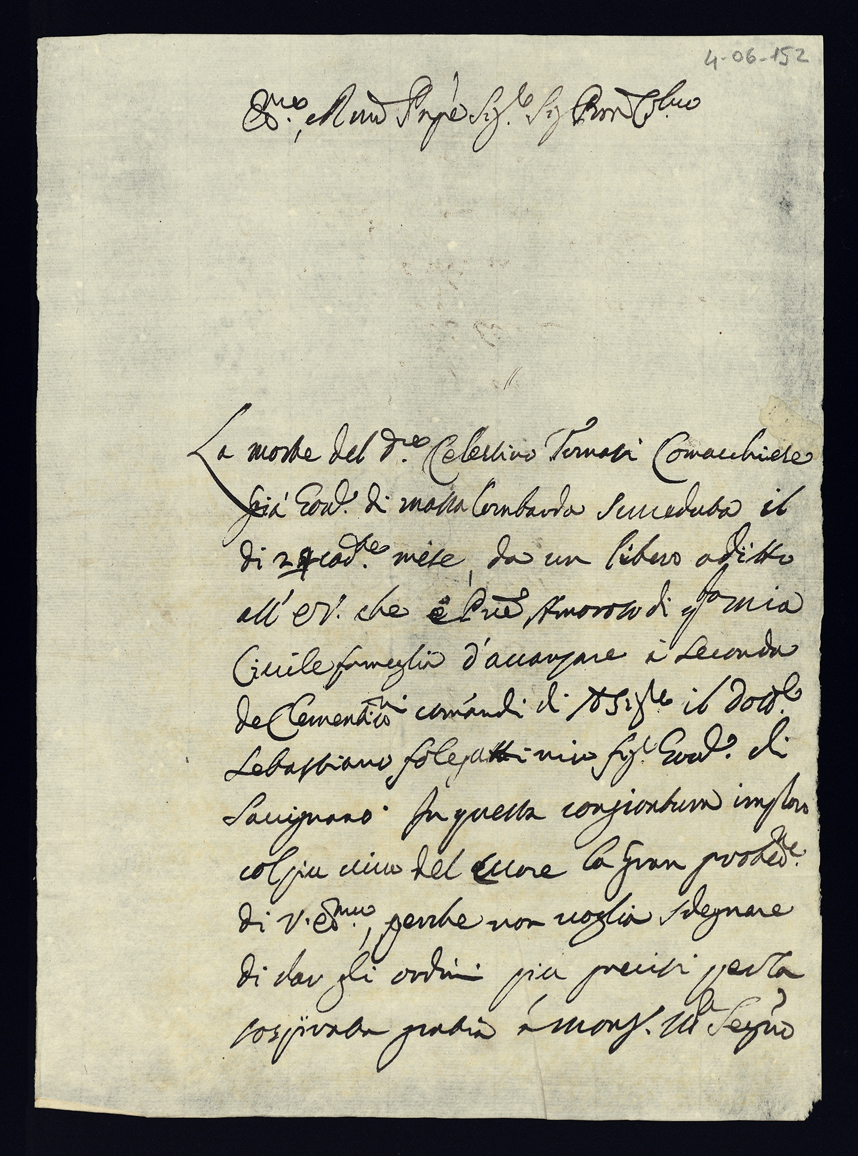 4-06-152
La morte del d.re Celestino Tomasi Comacchiese
già Gov.re di Massa Lombarda succeduta il
di 24 cad.te mese, da un libero aditto
all' E.V. che è Amoroso di mia
Civile fameglia d'avanzare à seconda
de Clementis.mi comandi di il dott.re
Sebastiano folegatti mio fig.lo Gov.re di
Savignano. In questa congiontura imploro
col piu vivo del cuore la gran protez.ne
di V. Em.za, perche non voglia sdegnare
di dar gli ordini piu precisi per la
sospirata gratia à Mons.